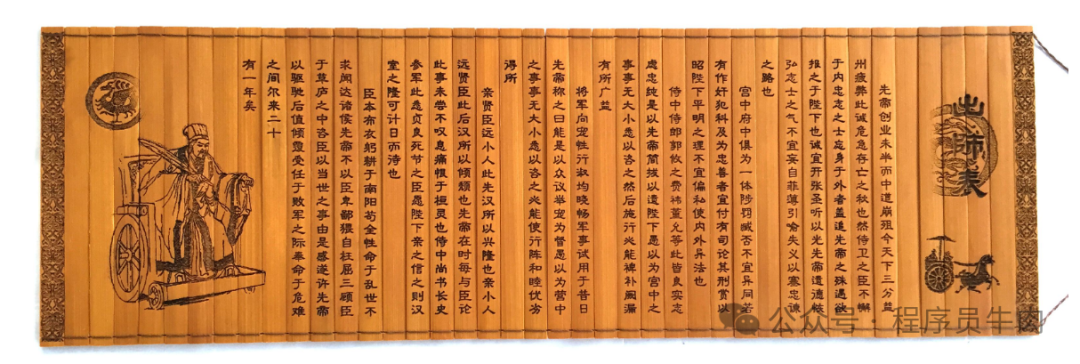 出师表
先帝创业未半而中道崩殂今天下三分益
州疲弊此诚危急存亡之秋也然侍卫之臣不懈
于内忠志之士忘身于外者盖追先帝之殊遇欲
报之于陛下也诚宜开张圣听以光先帝遗德恢
弘志士之气不宜妄自菲薄引喻失义以塞忠谏
之路也
宫中府中俱为一体陟罚臧否不宜异同若
有作奸犯科及为忠善者宜付有司论其刑赏以
昭陛下平明之理不宜偏私使内外异法也
侍中侍郎郭攸之费祎董允等此皆良实志
虑忠纯是以先帝简拔以遗陛下愚以为宫中之
事事无大小悉以咨之然后施行必能裨补阙漏
有所广益
将军向宠性行淑均晓畅军事试用于昔日
先帝称之曰能是以众议举宠为督愚以为营中
之事事无大小悉以咨之必能使行阵和睦优劣
得所
亲贤臣远小人此先汉所以兴隆也亲小人
远贤臣此后汉所以倾颓也先帝在时每与臣论
此事未尝不叹息痛恨于桓灵也侍中尚书长史
参军此悉贞良死节之臣愿陛下亲之信之则汉
室之隆可计日而待也
臣本布衣躬耕于南阳苟全性命于乱世不
求闻达诸侯先帝不以臣卑鄙猥自枉屈三顾臣
于草庐之中咨臣以当世之事由是感遂许先帝
以驱驰后值倾覆受任于败军之际奉命于危难
之间尔来二十
有一年矣
公众号·程序员牛肉